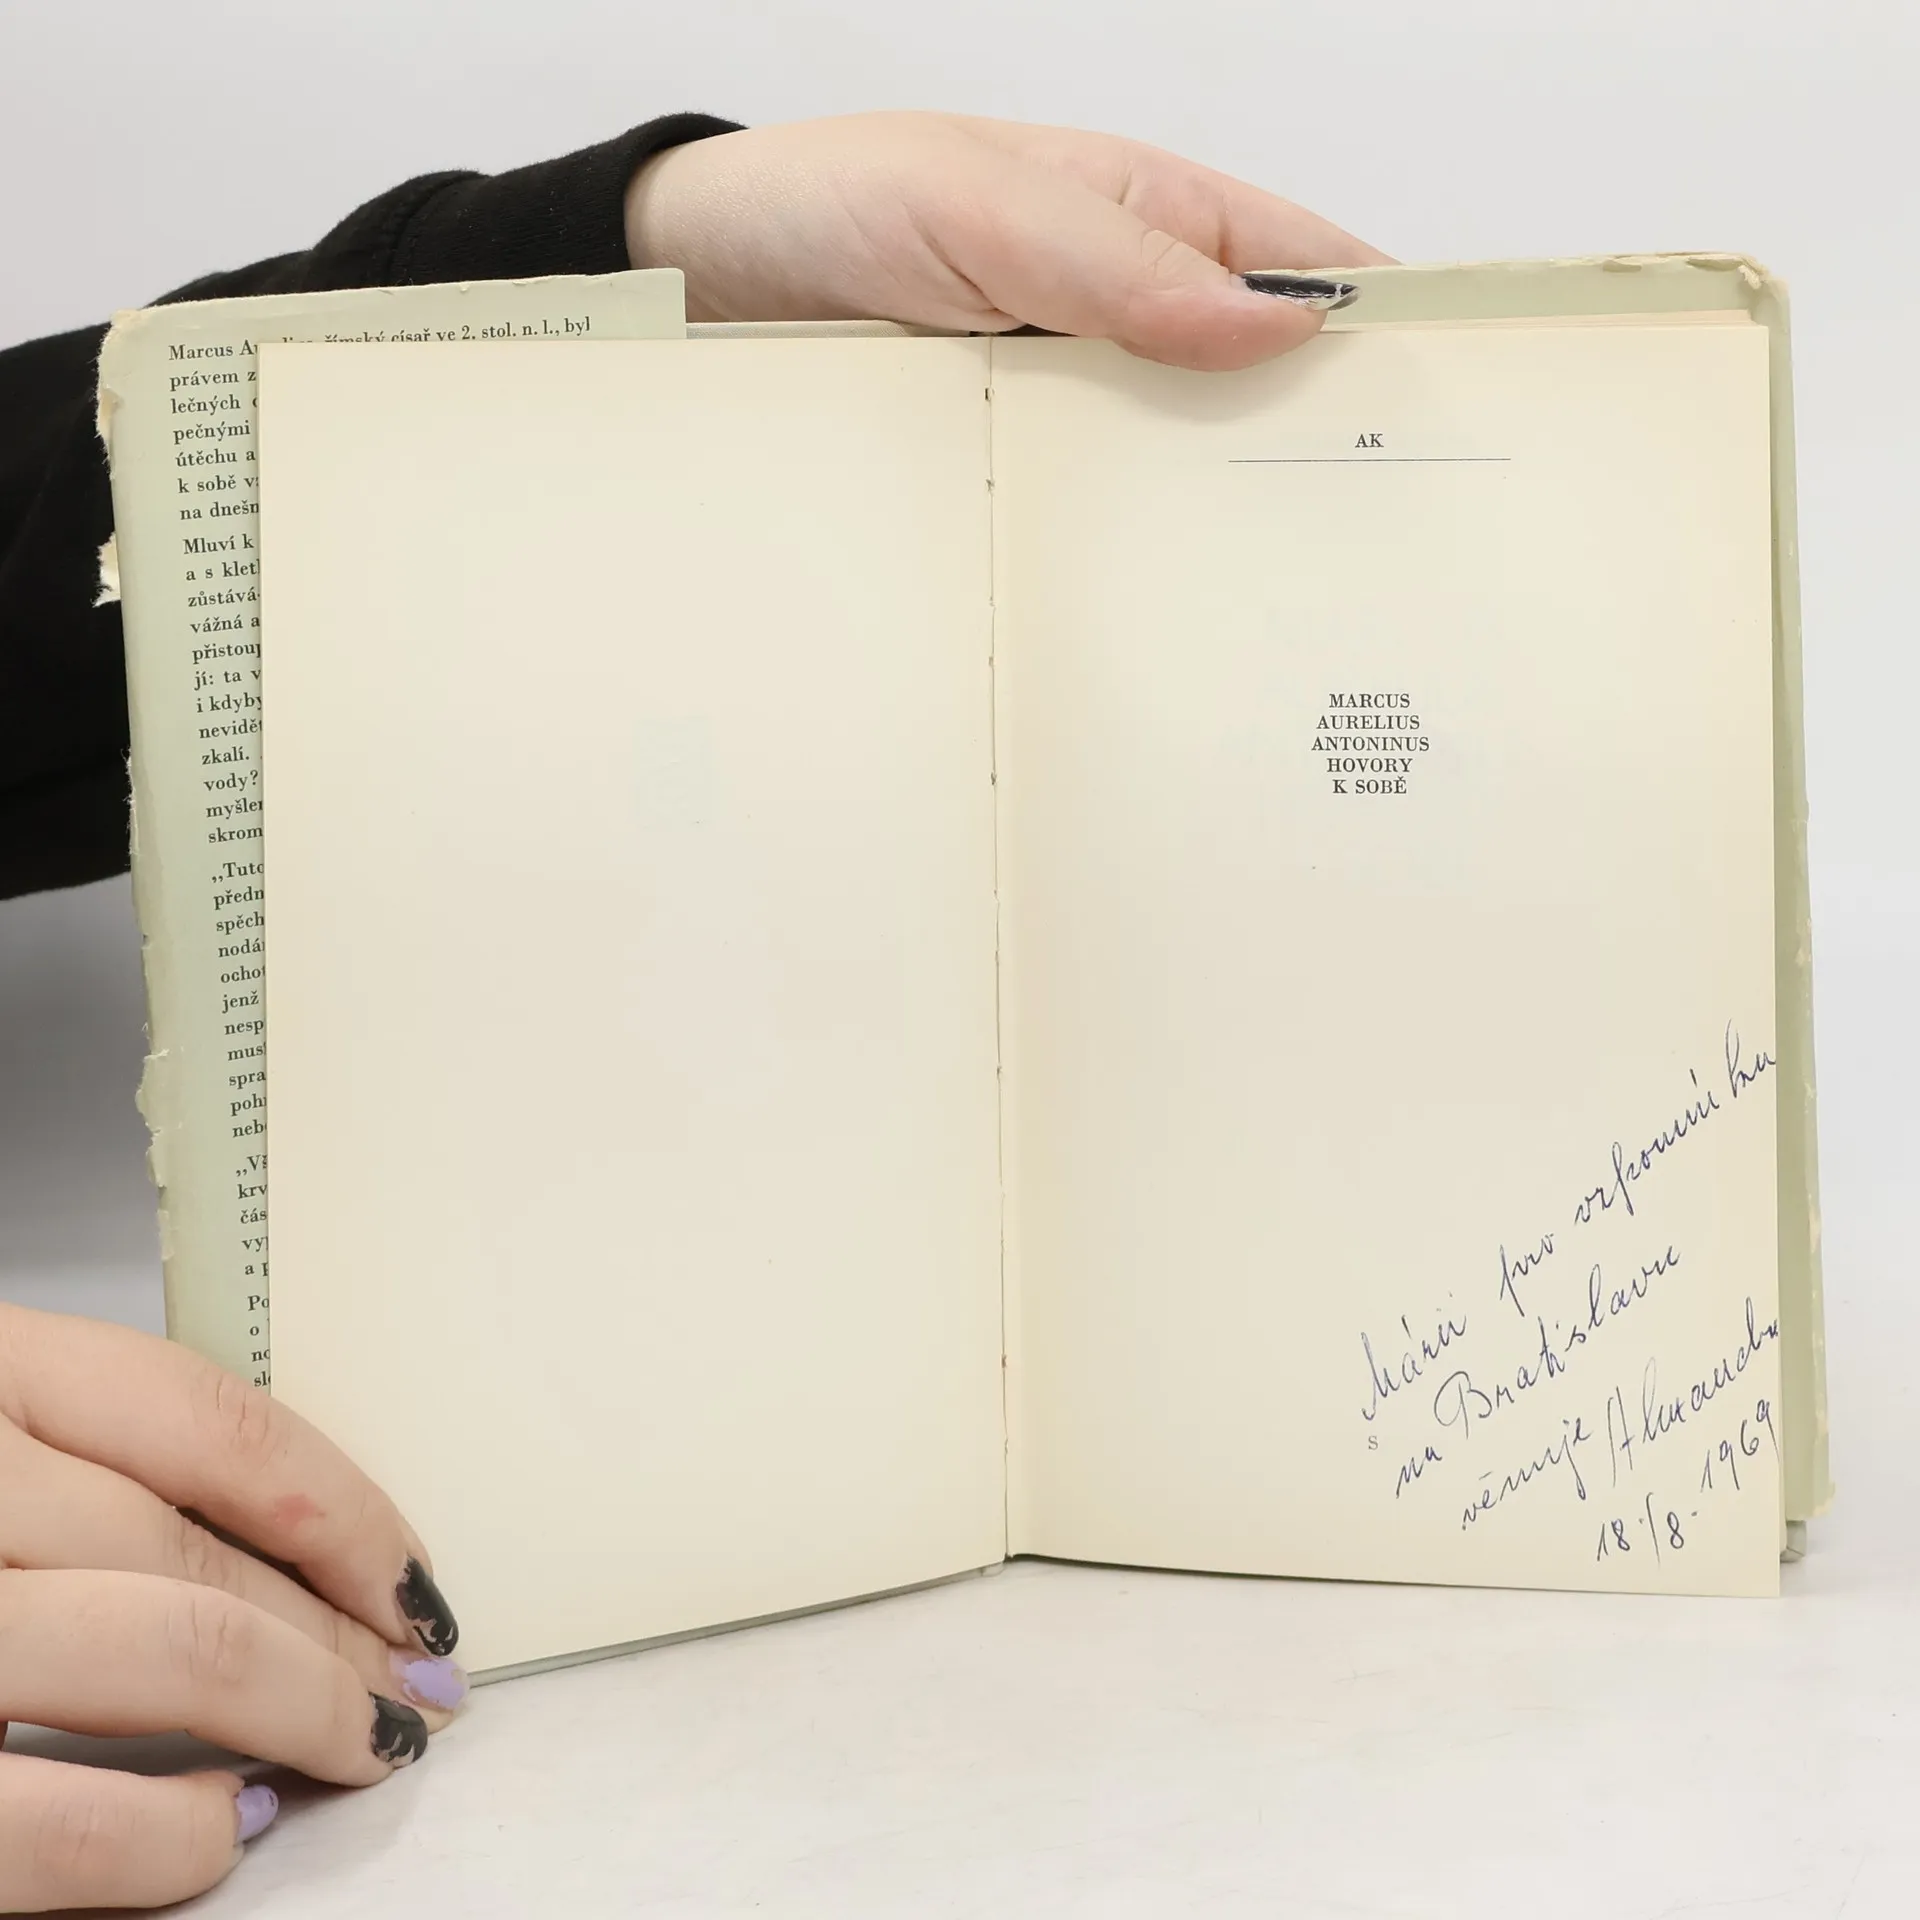 Marcus Aurelius, římský císař ve 2. stol. n. l., byl
právem z
lečných
pečnými
útěchu a
k sobě v
na dnešn
Mluví k
a s klet
zůstává
vážná a
přistoup
jí: ta v
i kdyby
nevidět
zkalí.
vody?
myšlen
skrom
„Tuto
předn
spěch
nodá
ochot
jenž
nesp
mus
spra
poh
neb
„Vš
krv
čás
vyp
a p
Po
o
no
slo
AK
MARCUS
AURELIUS
ANTONINUS
HOVORY
K SOBĚ
Márii pro vzpomínku
na Bratislavu
věnuje Alexandra
18./8. 1969
S